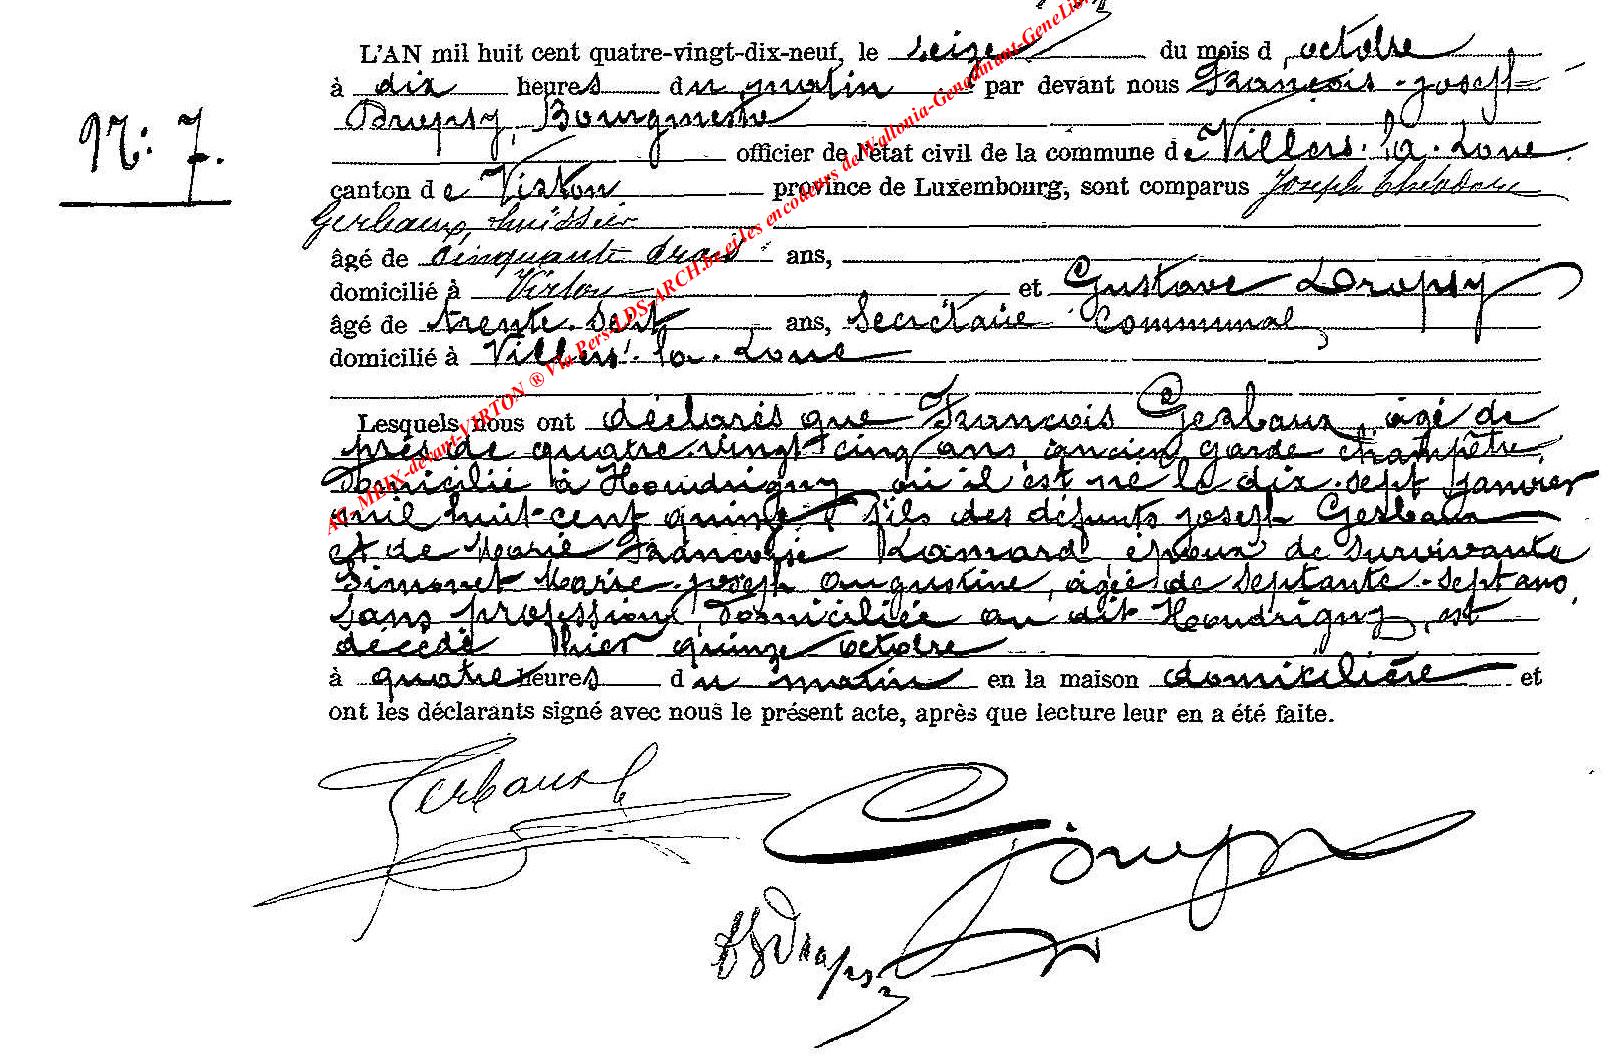 L'AN mil huit cent quatre-vingt-dix-neuf, le seize du mois d octobre
à dix heures du matin par devant nous François-Joseph
N: 7.
Dropsy, Bourgmestre
officier de l'état civil de la commune de Villers-la-Loue
canton de Virton province de Luxembourg, sont comparus Joseph Théodore
Gerbaux, huissier
âgé de cinquante trois ans,
domicilié à Virton et Gustave Dropsy
âgé de trente-sept ans, Secrétaire Communal,
domicilié à Villers-la-Loue
Lesquels nous ont déclarés que François Gerbaux, âgé de
près de quatre-vingt-cinq ans, ancien garde champêtre,
Domicilié à Houdrigny où il est né le dix-sept janvier
mil huit-cent quinze, fils des défunts Joseph Gerbaux
et de Marie Françoise Lamard, époux de survivante
Simonet Marie-Joseph Augustine, âgée de septante-sept ans,
sans profession, Domiciliée au dit Houdrigny, est
décédé hier quinze octobre
à quatre heures du matin en la maison domicilière et
ont les déclarants signé avec nous le présent acte, après que lecture leur en a été faite.
Gerbaux
G Dropsy
FJ Dropsy
AC-MEIX-devant-VIRTON ® Via Pers-LDS-ARCH.be et les encodeurs de Wallonia-Genadinant-GeneLib